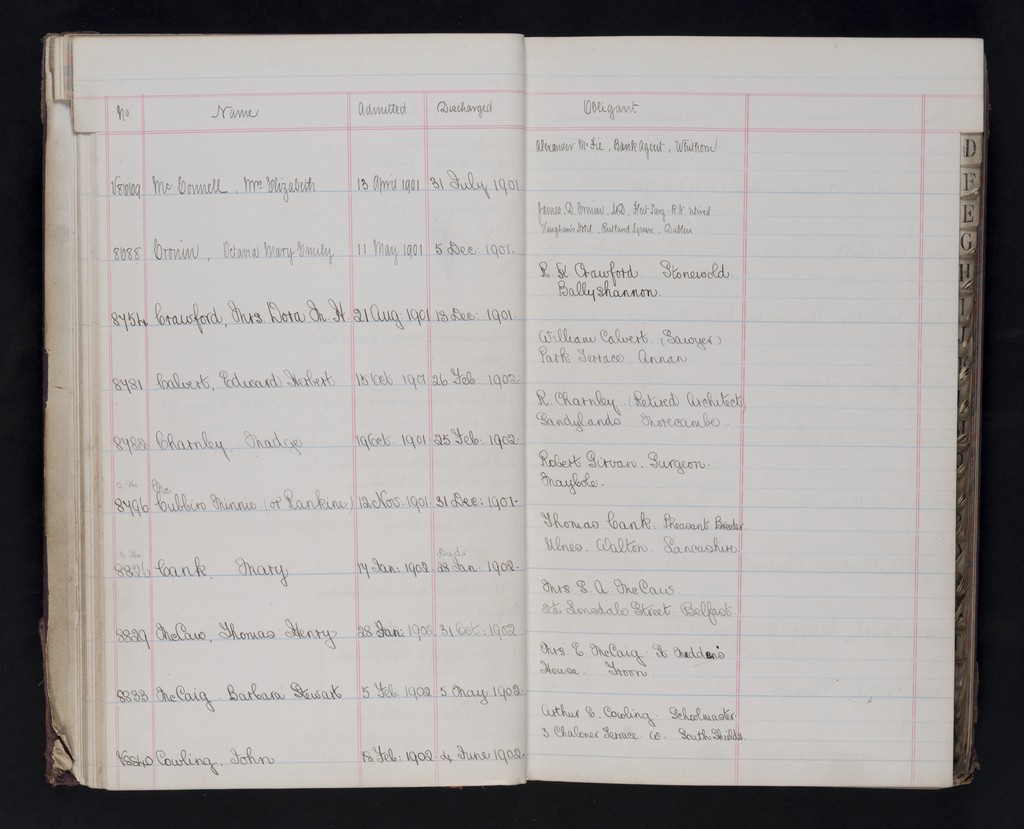 No Name Admitted Discharged Obligant
Alexander McFie, Bank Agent, Whithorn
8669 McConnell, Mrs Elizabeth 13 April 1901 31 July 1901
James D. Cronin M.D. Fleet Surg. R.N. retired
Vaughan's Hotel, Rutland Square, Dublin
8688 Cronin, Octavia Mary Emily 11 May 1901 5 Dec. 1901.
R. St. Crawford Stonewold
Ballyshannon.
8754 Crawford, Mrs Dora M. H 21 Aug 1901 18 Dec: 1901
William Calvert (Sawyer)
Park Terrace Annan
8781 Calvert, Edward Herbert 15 Oct 1901 26 Feb. 1902
R. Charnley (Retired Architect)
Sandylands Morecambe.
8782 Charnley Madge 19 Oct 1901 25 Feb. 1902
Robert Girvan. Surgeon.
Maybole.
Mc
8796 Cubbin Minnie (or Rankine) 12 Nov. 1901 31 Dec: 1901.
Thomas Cank. Pheasant Breeder
Ulnes Walton Lancashire
Died
8826 Cank, Mary 17 Jan: 1902 28 Jan: 1902.
Mrs. S. A. McCaw
Lonsdale Street Belfast
8829 McCaw, Thomas Henry 28 Jan: 1902 31 Oct: 1902
Mrs. E. McCaig St Meddan's
House Troon
8833 McCaig Barbara Stewart 5 Feb 1902 5 May 1902.
Arthur E. Cowling Schoolmaster
3 Chaloner Terrace W. South Shields.
8840 Cowling, John 18 Feb: 1902 4 June 1902.
D
F
E
G
H
I